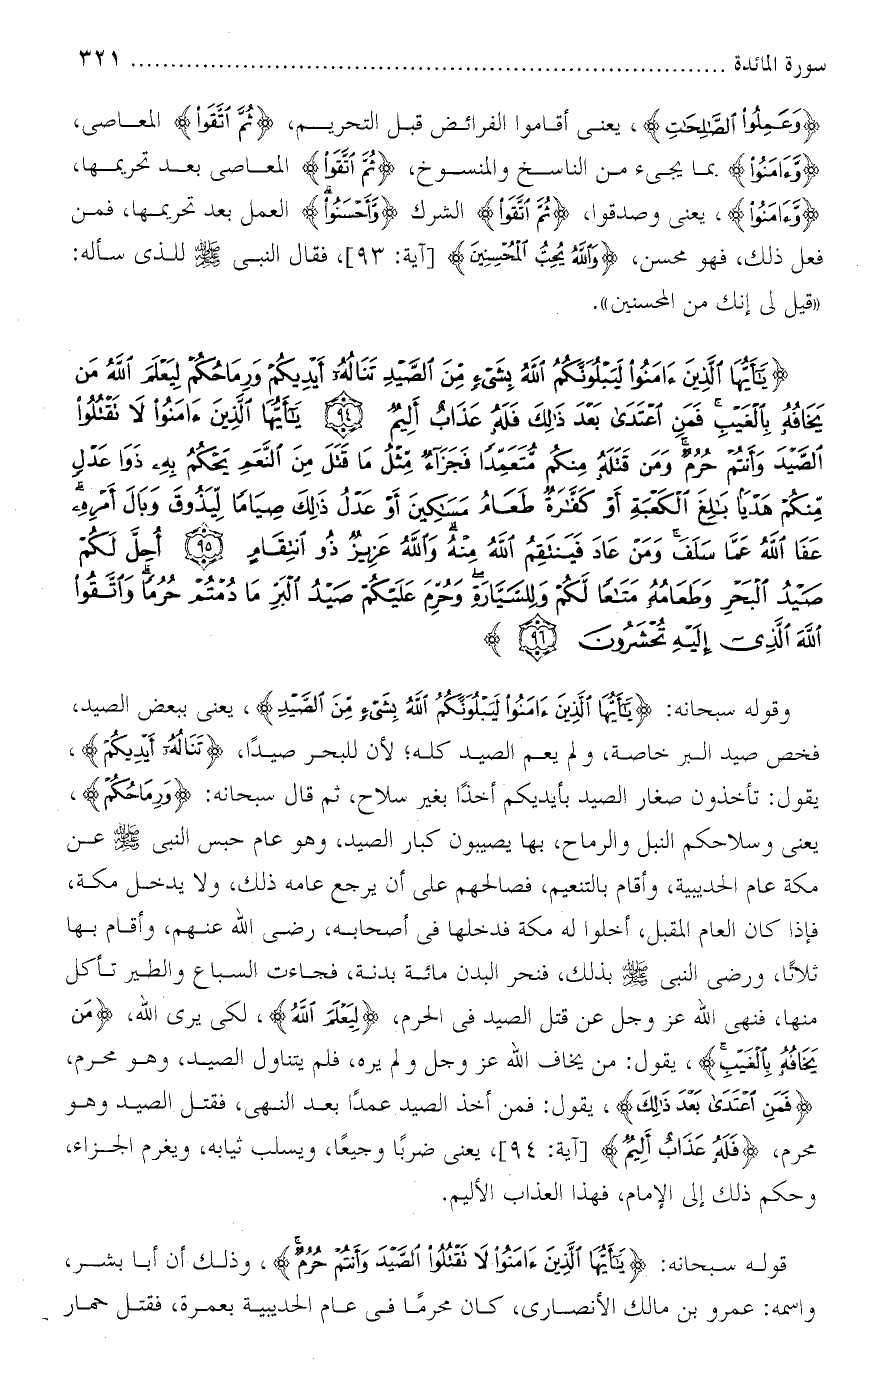 سورة المائدة ........................................................................ ٣٢١
﴿وَعَمِلُوا۟ ٱلصَّٰلِحَٰتِ﴾، يعنى أقاموا الفرائض قبل التحريم، ﴿ثُمَّ ٱتَّقَوا۟﴾ المعاصى،
﴿وَّءَامَنُوا۟﴾ بما يجىء من الناسخ والمنسوخ، ﴿ثُمَّ ٱتَّقَوا۟﴾ المعاصى بعد تحريمها،
﴿وَّءَامَنُوا۟﴾، يعنى وصدقوا، ﴿ثُمَّ ٱتَّقَوا۟﴾ الشرك ﴿وَّأَحْسَنُوا۟ۗ﴾ العمل بعد تحريمها، فمن
فعل ذلك، فهو محسن، ﴿وَٱللَّهُ يُحِبُّ ٱلْمُحْسِنِينَ﴾ [آية: ٩٣]، فقال النبى ﷺ للذى سأله:
«قيل لى إنك من المحسنين».
﴿يَٰٓأَيُّهَا ٱلَّذِينَ ءَامَنُوا۟ لَيَبْلُوَنَّكُمُ ٱللَّهُ بِشَىْءٍ مِّنَ ٱلصَّيْدِ تَنَالُهُۥٓ أَيْدِيكُمْ وَرِمَاحُكُمْ لِيَعْلَمَ ٱللَّهُ مَن
يَخَافُهُۥ بِٱلْغَيْبِ ۚ فَمَنِ ٱعْتَدَىٰ بَعْدَ ذَٰلِكَ فَلَهُۥ عَذَابٌ أَلِيمٌ ﴿٩٤﴾ يَٰٓأَيُّهَا ٱلَّذِينَ ءَامَنُوا۟ لَا تَقْتُلُوا۟
ٱلصَّيْدَ وَأَنتُمْ حُرُمٌ ۚ وَمَن قَتَلَهُۥ مِنكُم مُّتَعَمِّدًا فَجَزَآءٌ مِّثْلُ مَا قَتَلَ مِنَ ٱلنَّعَمِ يَحْكُمُ بِهِۦ ذَوَا عَدْلٍ
مِّنكُمْ هَدْيًۢا بَٰلِغَ ٱلْكَعْبَةِ أَوْ كَفَّٰرَةٌ طَعَامُ مَسَٰكِينَ أَوْ عَدْلُ ذَٰلِكَ صِيَامًا لِّيَذُوقَ وَبَالَ أَمْرِهِۦ ۗ
عَفَا ٱللَّهُ عَمَّا سَلَفَ ۚ وَمَنْ عَادَ فَيَنتَقِمُ ٱللَّهُ مِنْهُ ۗ وَٱللَّهُ عَزِيزٌ ذُو ٱنتِقَامٍ ﴿٩٥﴾ أُحِلَّ لَكُمْ
صَيْدُ ٱلْبَحْرِ وَطَعَامُهُۥ مَتَٰعًا لَّكُمْ وَلِلسَّيَّارَةِ ۖ وَحُرِّمَ عَلَيْكُمْ صَيْدُ ٱلْبَرِّ مَا دُمْتُمْ حُرُمًا ۗ وَٱتَّقُوا۟
ٱللَّهَ ٱلَّذِىٓ إِلَيْهِ تُحْشَرُونَ ﴿٩٦﴾﴾
وقوله سبحانه: ﴿يَٰٓأَيُّهَا ٱلَّذِينَ ءَامَنُوا۟ لَيَبْلُوَنَّكُمُ ٱللَّهُ بِشَىْءٍ مِّنَ ٱلصَّيْدِ﴾، يعنى ببعض الصيد،
فخص صيد البر خاصة، ولم يعم الصيد كله؛ لأن للبحر صيدًا، ﴿تَنَالُهُۥٓ أَيْدِيكُمْ﴾،
يقول: تأخذون صغار الصيد بأيديكم أخذًا بغير سلاح، ثم قال سبحانه: ﴿وَرِمَاحُكُمْ﴾،
يعنى وسلاحكم النبل والرماح، بها يصيبون كبار الصيد، وهو عام حبس النبى ﷺ عن
مكة عام الحديبية، وأقام بالتنعيم، فصالحهم على أن يرجع عامه ذلك، ولا يدخل مكة،
فإذا كان العام المقبل، أخلوا له مكة فدخلها فى أصحابه، رضى الله عنهم، وأقام بها
ثلاثًا، ورضى النبى ﷺ بذلك، فنحر البدن مائة بدنة، فجاءت السباع والطير تأكل
منها، فنهى الله عز وجل عن قتل الصيد فى الحرم، ﴿لِيَعْلَمَ ٱللَّهُ﴾، لكى يرى الله، ﴿مَن
يَخَافُهُۥ بِٱلْغَيْبِ ۚ﴾، يقول: من يخاف الله عز وجل ولم يره، فلم يتناول الصيد، وهو محرم،
﴿فَمَنِ ٱعْتَدَىٰ بَعْدَ ذَٰلِكَ﴾، يقول: فمن أخذ الصيد عمدًا بعد النهى، فقتل الصيد وهو
محرم، ﴿فَلَهُۥ عَذَابٌ أَلِيمٌ﴾ [آية: ٩٤]، يعنى ضربًا وجيعًا، ويسلب ثيابه، ويغرم الجزاء،
وحكم ذلك إلى الإمام، فهذا العذاب الأليم.
قوله سبحانه: ﴿يَٰٓأَيُّهَا ٱلَّذِينَ ءَامَنُوا۟ لَا تَقْتُلُوا۟ ٱلصَّيْدَ وَأَنتُمْ حُرُمٌ ۚ﴾، وذلك أن أبا بشر،
واسمه: عمرو بن مالك الأنصارى، كان محرمًا فى عام الحديبية بعمرة، فقتل حمار